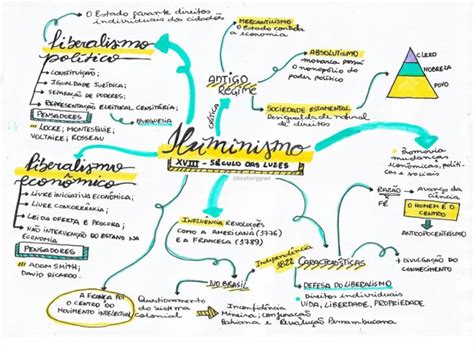 O Estado garante direitos
individuais dos cidadãos
liberalismo
político
CONSTITUIÇÃO;
IGUALDADE JURÍDICA;
SEPARAÇÃO DE PODERES;
REPRESENTAÇÃO ELEITORAL CENSITÁRIA;
PENSADORES
BURGUESIA
LOCKE; MONTESQUIE;
VOLTAIRE; ROSSEAU
MERCANTILISMO
O ESTADO CONTROLA
a economia
ABSOLUTISMO
monarca possui
o monopólio do
poder político
ANTIGO
REGIME
CRÍTICA
SOCIEDADE ESTAMENTAL
Desigualdade natural
de direitos
CLERO
NOBREZA
POVO
Iluminismo
XVIII - SÉCULO DAS LUZES
liberalismo
econômico
LIVRE INICIATIVA ECONÔMICA;
LIVRE CONCORRÊNCIA;
LEI DA OFERTA E PROCURA;
NÃO INTERVENÇÃO DO ESTADO NA
ECONOMIA
PENSADORES
ADAM SMITH;
DAVID RICARDO.
Promovia
mudanças
econômicas, políti-
cas e sociais
RAZÃO
FÉ
Avanço da
ciência
O HOMEM É O
CENTRO
ANTROPOCENTRISMO
INFLUÊNCIA REVOLUÇÕES
COMO A AMERICANA (1776)
E A FRANCESA (1789)
Independência
1822
CARACTERÍSTICAS
DIVULGAÇÃO DO
CONHECIMENTO
DEFESA DO LIBERALISMO
Direitos individuais
VIDA, LIBERDADE, PROPRIEDADE
NO BRASIL
A FRANÇA FOI
O CENTRO DO
MOVIMENTO INTELECTUAL
Questionamento
do sistema
colonial
Inconfidência
Mineira, Conjuração
Bahiana e Revolução Pernambucana